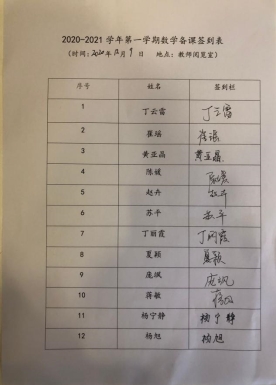 2020-2021 学年第一学期数学备课签到表
(时间:2020年12月9日 地点:教师阅览室)
序号 姓名 签到栏
1 丁云雷 丁云雷
2 崔瑶 崔瑶
3 黄亚晶 黄亚晶
4 陈媛
5 赵卉 赵卉
6 苏平 苏平
7 丁丽霞 丁丽霞
8 夏颖 夏颖
9 庞飒 庞飒
10 蒋敏
11 杨宁静 杨宁静
12 杨旭 杨旭